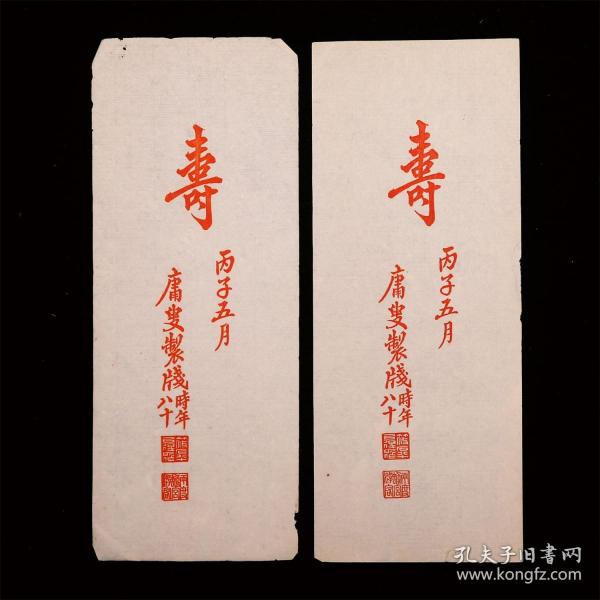 壽
丙子五月
庸叟製牋時年
八十
壽
丙子五月
庸叟製牋時年
八十
孔夫子旧书网
www.kongfz.com